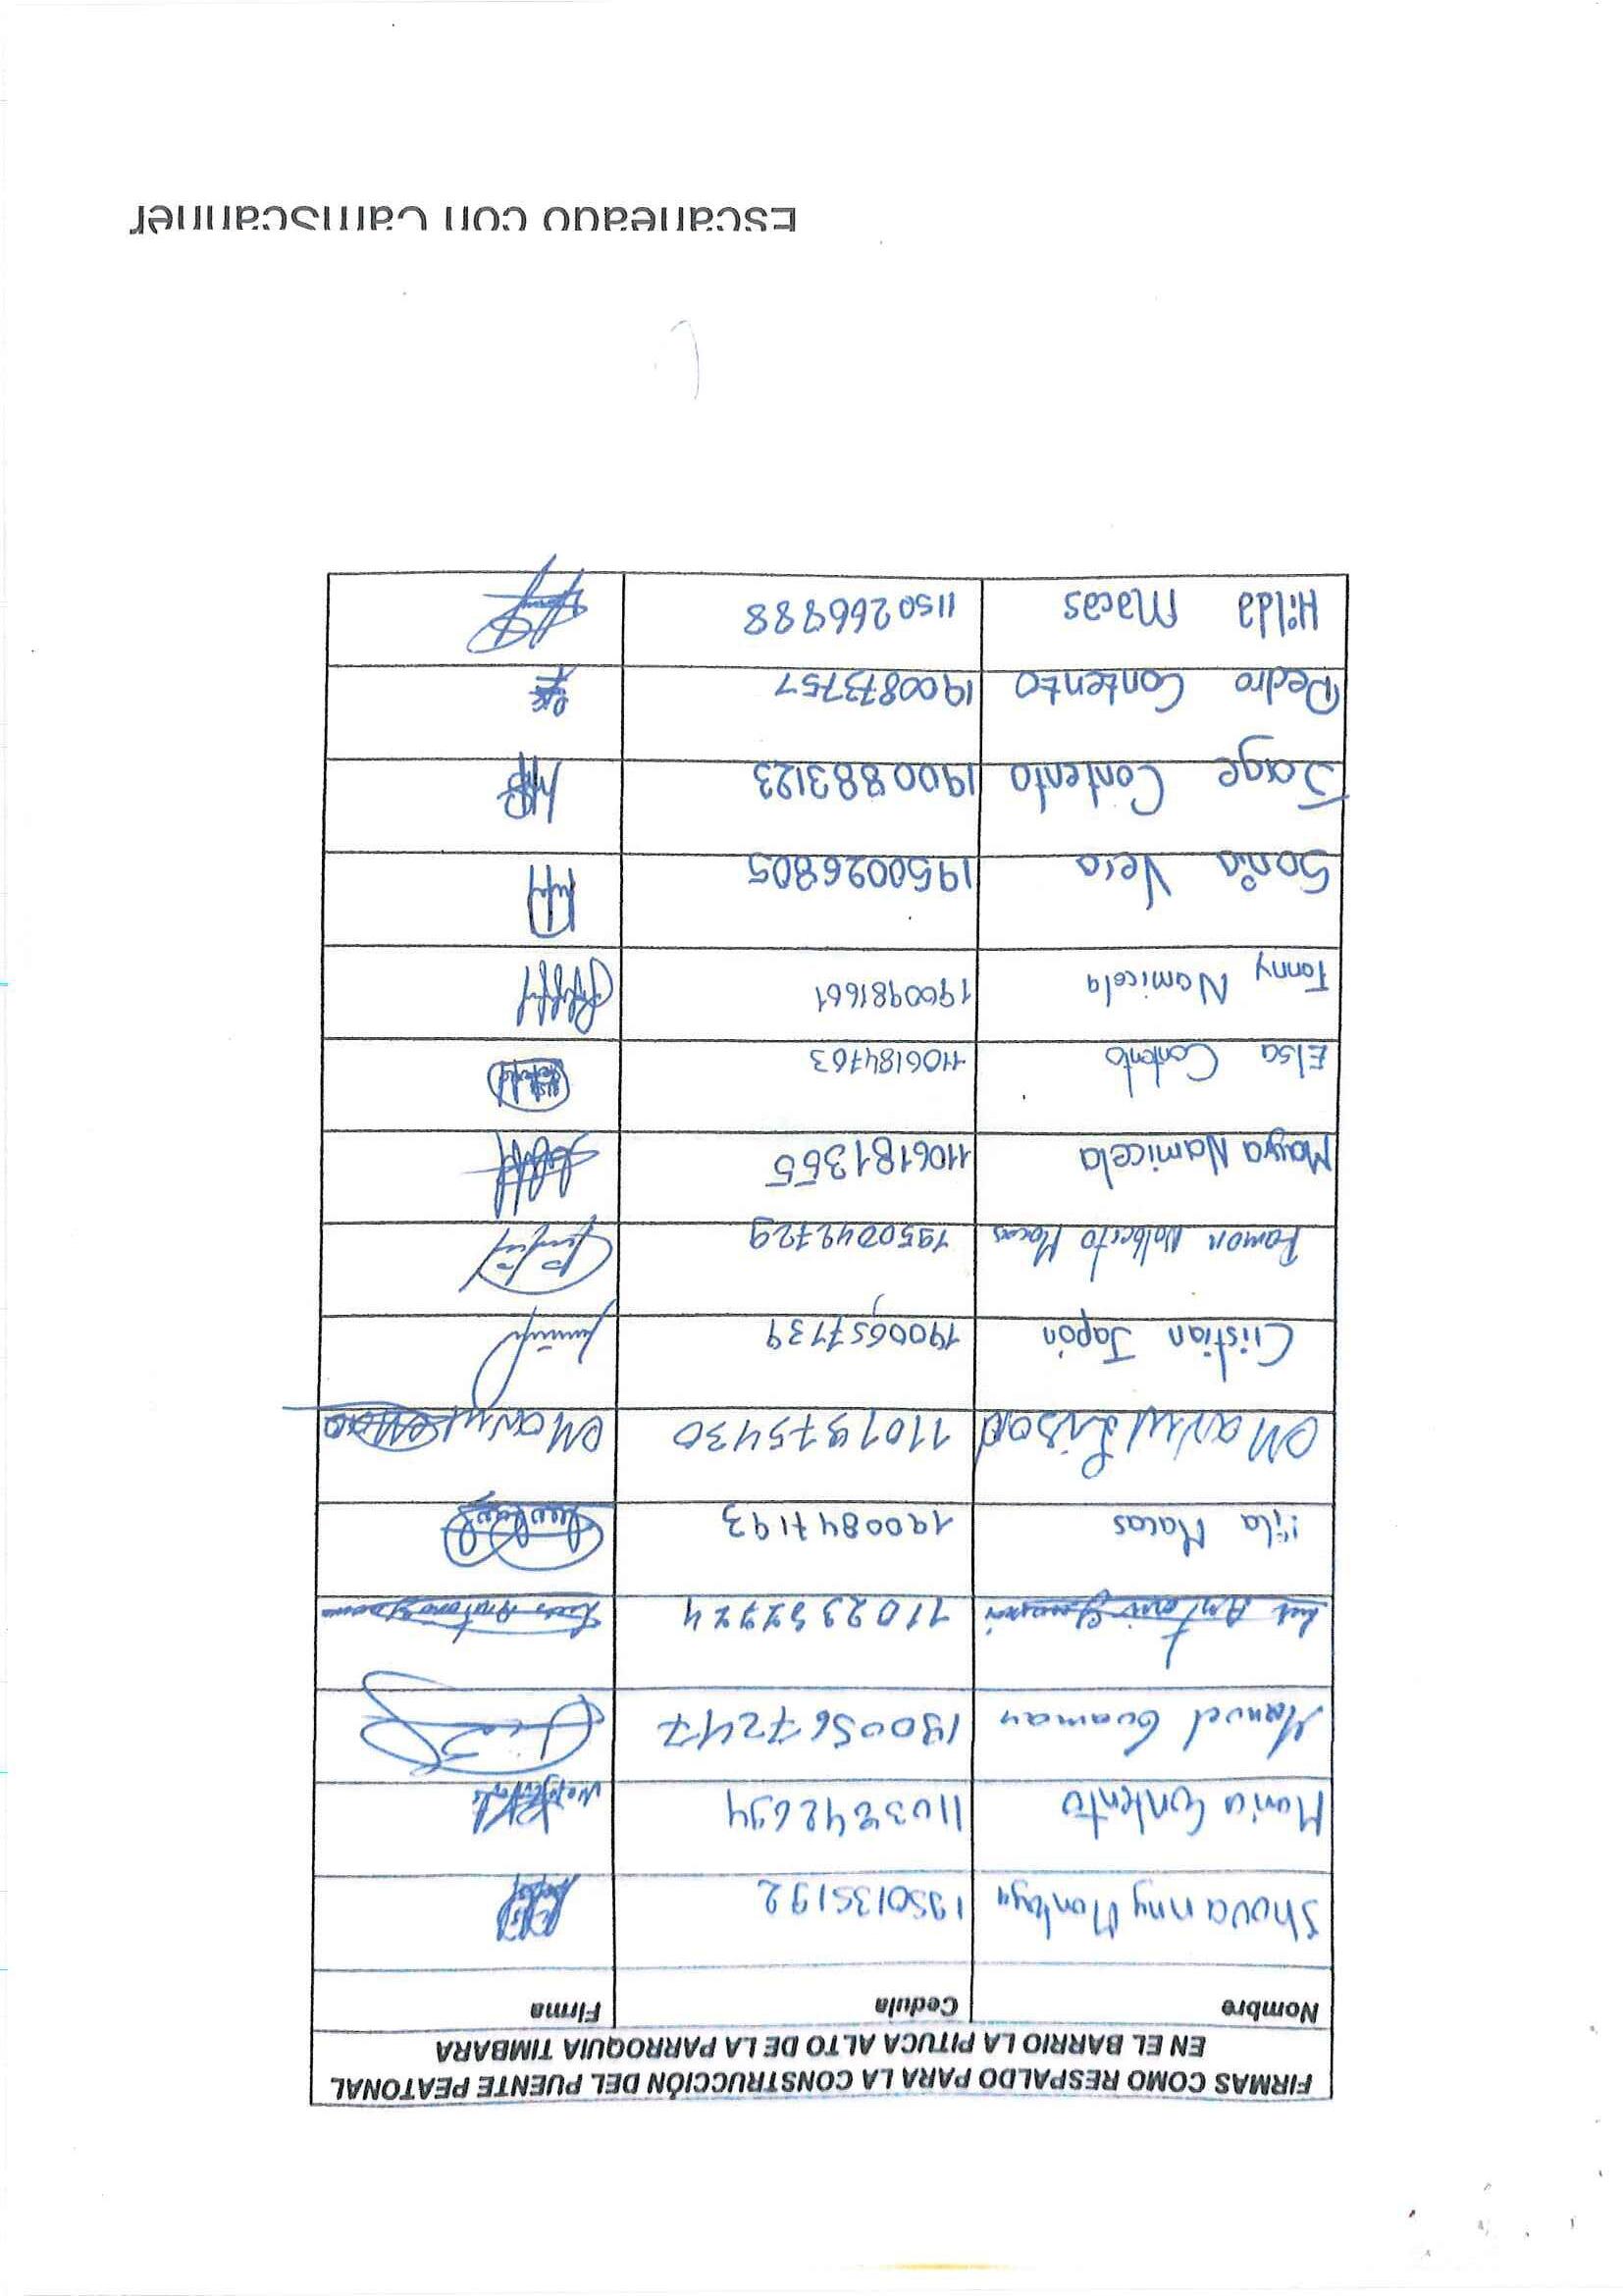 FIRMAS COMO RESPALDO PARA LA CONSTRUCCIÓN DEL PUENTE PEATONAL
EN EL BARRIO LA PITUCA ALTO DE LA PARROQUIA TIMBARA
Nombre Cedula Firma
Shovanny Montoya 1950135192
Maria Contento 1103242694
Manuel Guaman 1900567247
Luis Antonio 1102337724 Luis Antonio
Macas 1900847193
1101975430
Cristian Japón 1900657739
Ramon Nolberto Macas 1950042729
Mayra Namicela 1106181365
Elsa Contento 1106184763
Fanny Namicela 1900981661
Sonia Vera 1950026805
Jorge Contento 1900883123
Pedro Contento 1900873757
Hilda Macas 1150266988
Escaneado con CamScanner